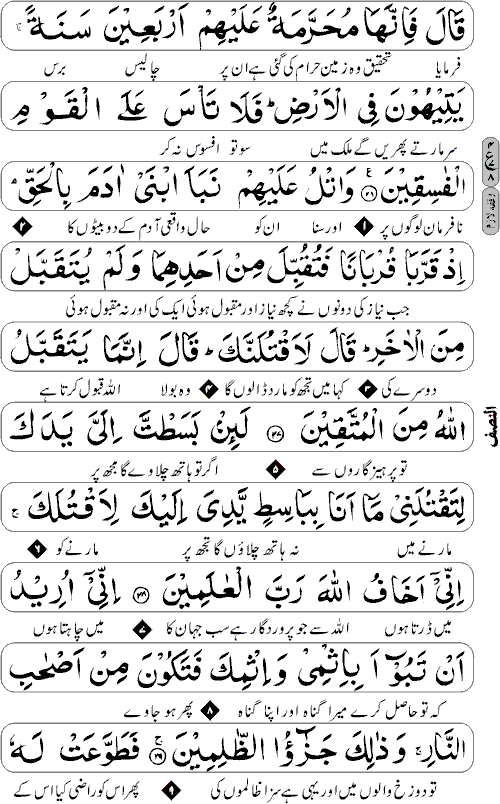 قَالَ فَاِنَّهَا مُحَرَّمَةٌ عَلَيْهِمْ اَرْبَعِيْنَ سَنَةً ۚ
فرمایا تحقیق وہ زمین حرام کی گئی ہے ان پر چالیس برس
يَتِيْهُوْنَ فِى الْاَرْضِ ؕ فَلَا تَاْسَ عَلَى الْقَوْمِ
سر مارتے پھریں گے ملک میں سو تو افسوس نہ کر
الْفٰسِقِيْنَ ﴿۲۶﴾ وَاتْلُ عَلَيْهِمْ نَبَاَ ابْنَىْ اٰدَمَ بِالْحَقِّ ۘ
نافرمان لوگوں پر ۱ اور سنا ان کو حال واقعی آدم کے دو بیٹوں کا ۲
اِذْ قَرَّبَا قُرْبَانًا فَتُقُبِّلَ مِنْ اَحَدِهِمَا وَلَمْ يُتَقَبَّلْ
جب نیاز کی دونوں نے کچھ نیاز اور مقبول ہوئی ایک کی اور نہ مقبول ہوئی
مِنَ الْاٰخَرِ ؕ قَالَ لَاَقْتُلَنَّكَ ؕ قَالَ اِنَّمَا يَتَقَبَّلُ
دوسرے کی ۳ کہا میں تجھ کو مار ڈالوں گا ۴ وہ بولا اللہ قبول کرتا ہے
اللّٰهُ مِنَ الْمُتَّقِيْنَ ﴿۲۷﴾ لَئِنْۢ بَسَطْتَّ اِلَىَّ يَدَكَ
تو پرہیزگاروں سے ۵ اگر تو ہاتھ چلاوے گا مجھ پر
لِتَقْتُلَنِىْ مَاۤ اَنَا بِبَاسِطٍ يَّدِىَ اِلَيْكَ لِاَقْتُلَكَ ۚ
مارنے میں نہ ہاتھ چلاؤں گا تجھ پر مارنے کو ۶
اِنِّىْۤ اَخَافُ اللّٰهَ رَبَّ الْعٰلَمِيْنَ ﴿۲۸﴾ اِنِّىْۤ اُرِيْدُ
میں ڈرتا ہوں اللہ سے جو پروردگار ہے سب جہان کا ۷ میں چاہتا ہوں
اَنْ تَبُوْٓءَا بِاِثْمِىْ وَاِثْمِكَ فَتَكُوْنَ مِنْ اَصْحٰبِ
کہ تو حاصل کرے میرا گناہ اور اپنا گناہ ۸ پھر ہو جاوے
النَّارِ ۚ وَذٰلِكَ جَزٰٓؤُا الظّٰلِمِيْنَ ﴿۲۹﴾ فَطَوَّعَتْ لَهٗ
تو دوزخ والوں میں اور یہی ہے سزا ظالموں کی ۹ پھر اس کو راضی کیا اس کے
وقف لازم
النصف